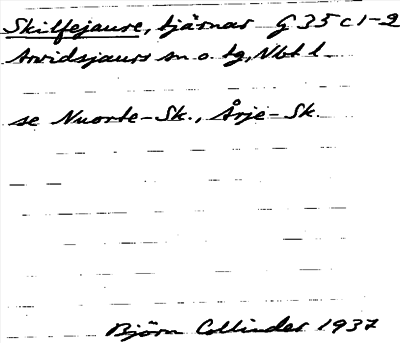 Skilfejaure, tjärnar G 35 c 1-2
Arvidsjaurs sn o. tg, Nbt l
se Nuorte-Sk., Årje-Sk.
Björn Collinder 1937